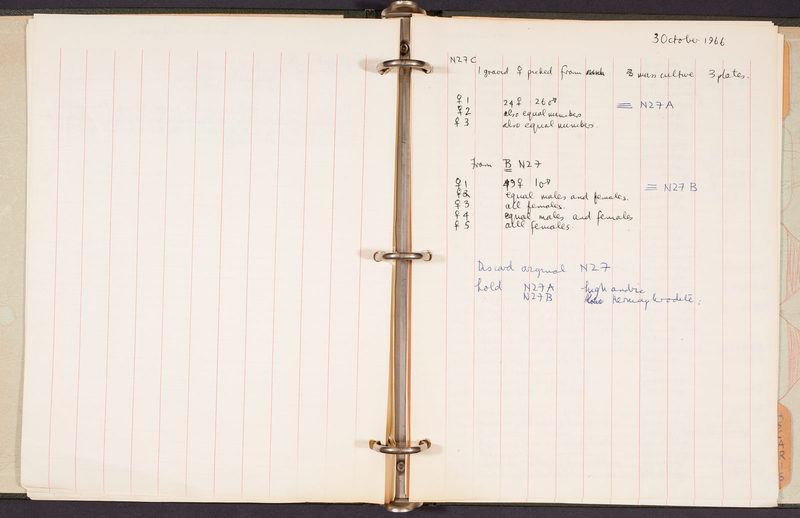 3 October 1966
N27C
1 gravid ♀ picked from mass culture 3 plates.
♀ 1 24♀ 26♂ ≡ N27A
♀ 2 also equal numbers
♀ 3 also equal numbers.
From B N27
♀ 1 49♀ 1♂ ≡ N27B
♀ 2 equal males and females.
♀ 3 all females.
♀ 4 equal males and females
♀ 5 all females.
Discard original N27
hold N27A high
N27B hermaphrodite.